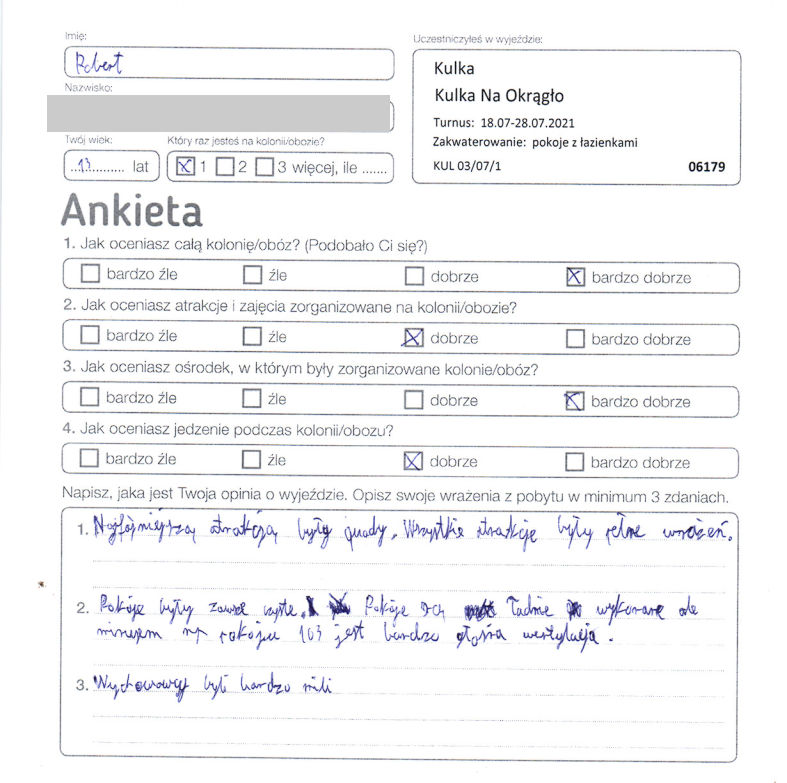 Imię:
Robert
Nazwisko:
Twój wiek:
..13.......... lat
Który raz jesteś na kolonii/obozie?
1 2 3 więcej, ile .......
Uczestniczyłeś w wyjeździe:
Kulka
Kulka Na Okrągło
Turnus: 18.07-28.07.2021
Zakwaterowanie: pokoje z łazienkami
KUL 03/07/1 06179
Ankieta
1. Jak oceniasz całą kolonię/obóz? (Podobało Ci się?)
bardzo źle źle dobrze bardzo dobrze
2. Jak oceniasz atrakcje i zajęcia zorganizowane na kolonii/obozie?
bardzo źle źle dobrze bardzo dobrze
3. Jak oceniasz ośrodek, w którym były zorganizowane kolonie/obóz?
bardzo źle źle dobrze bardzo dobrze
4. Jak oceniasz jedzenie podczas kolonii/obozu?
bardzo źle źle dobrze bardzo dobrze
Napisz, jaka jest Twoja opinia o wyjeździe. Opisz swoje wrażenia z pobytu w minimum 3 zdaniach.
1. Najfajniejszą atrakcją były quady. Wszystkie atrakcje były pełne wrażeń.
2. Pokoje były zawsze czyste. Pokoje są ładnie wykonane ale
minusem w pokoju 103 jest bardzo głośna wentylacja.
3. Wychowawcy byli bardzo mili